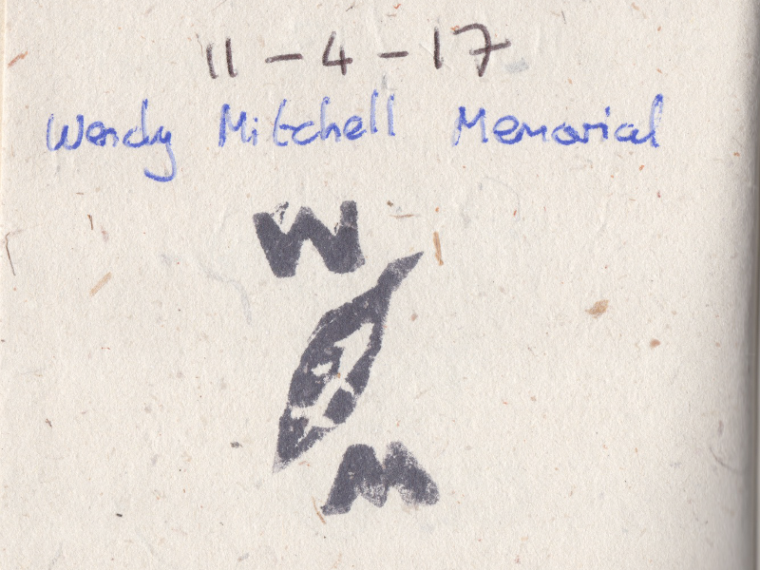 11-4-17
Wendy Mitchell Memorial
W
M